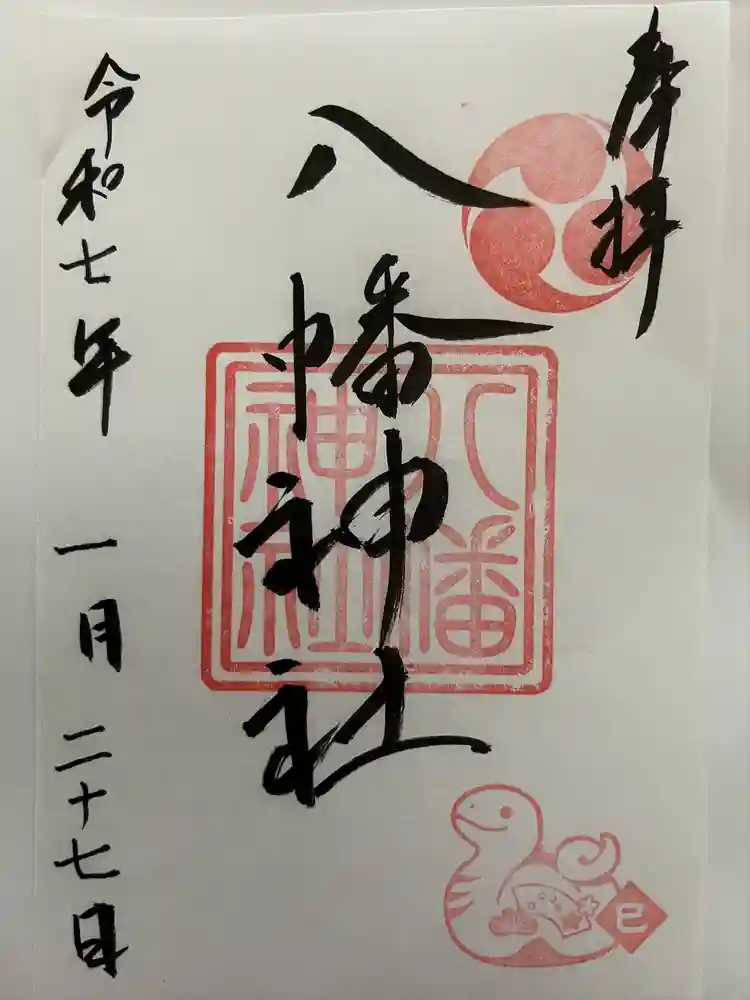 奉拝
八幡神社
八幡
神社
令和七年 一月 二十七日
巳